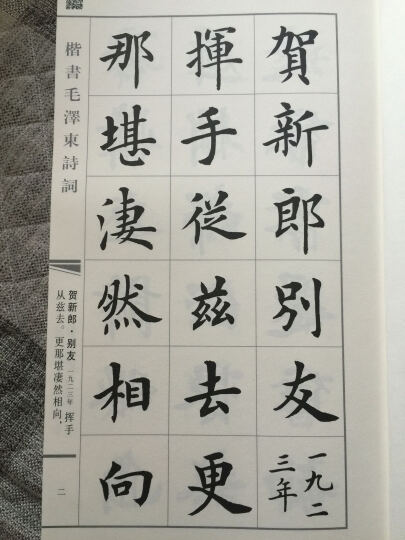 賀新郎別友一九二三年
揮手從茲去更
那堪淒然相向
楷書毛澤東詩詞
贺新郎·别友 一九二三年 挥手
从兹去。更那堪凄然相向，
二